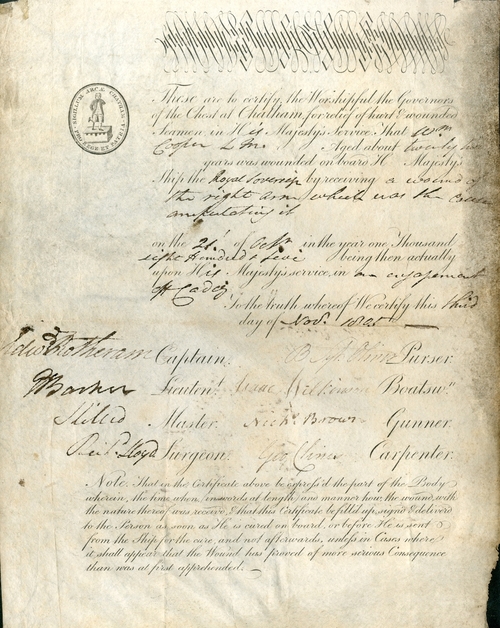 These are to certify the Worshipful the Governors
of the Chest at Chatham, for relief of hurt & wounded
Seamen in His Majesty's Service. That Wm
Cooper L.M. Aged about twenty two
years was wounded on board H Majesty's
Ship the Royal Soverign by receiving a wound
the right arm which was the cause
amputating it
on the 21st of Octr in the year one Thousand
eight Hundred & five being then actually
upon His Majesty's service, in an engagement
off Cadiz
To the truth whereof We certify this third
day of Novr 1805
Edwd Rotheram Captain. Purser.
Barker Lieutent. Isaac Wilkinson Boatswn
Master. Nichs Brown Gunner.
Richd Lloyd Surgeon. Geo Clines Carpenter.
Note. That in the Certificate above be express'd the part of the Body
wherein, the time when, in words at length, and manner how the wound, with
the nature thereof was receiv'd, & that this Certificate be fill'd up, sign'd & deliver'd
to the Person as soon as He is cured on board, or before He is sent
from the Ship for the cure, and not afterwards, unless in Cases where
it shall appear that the Wound has proved of more serious Consequence
than was at first apprehended.